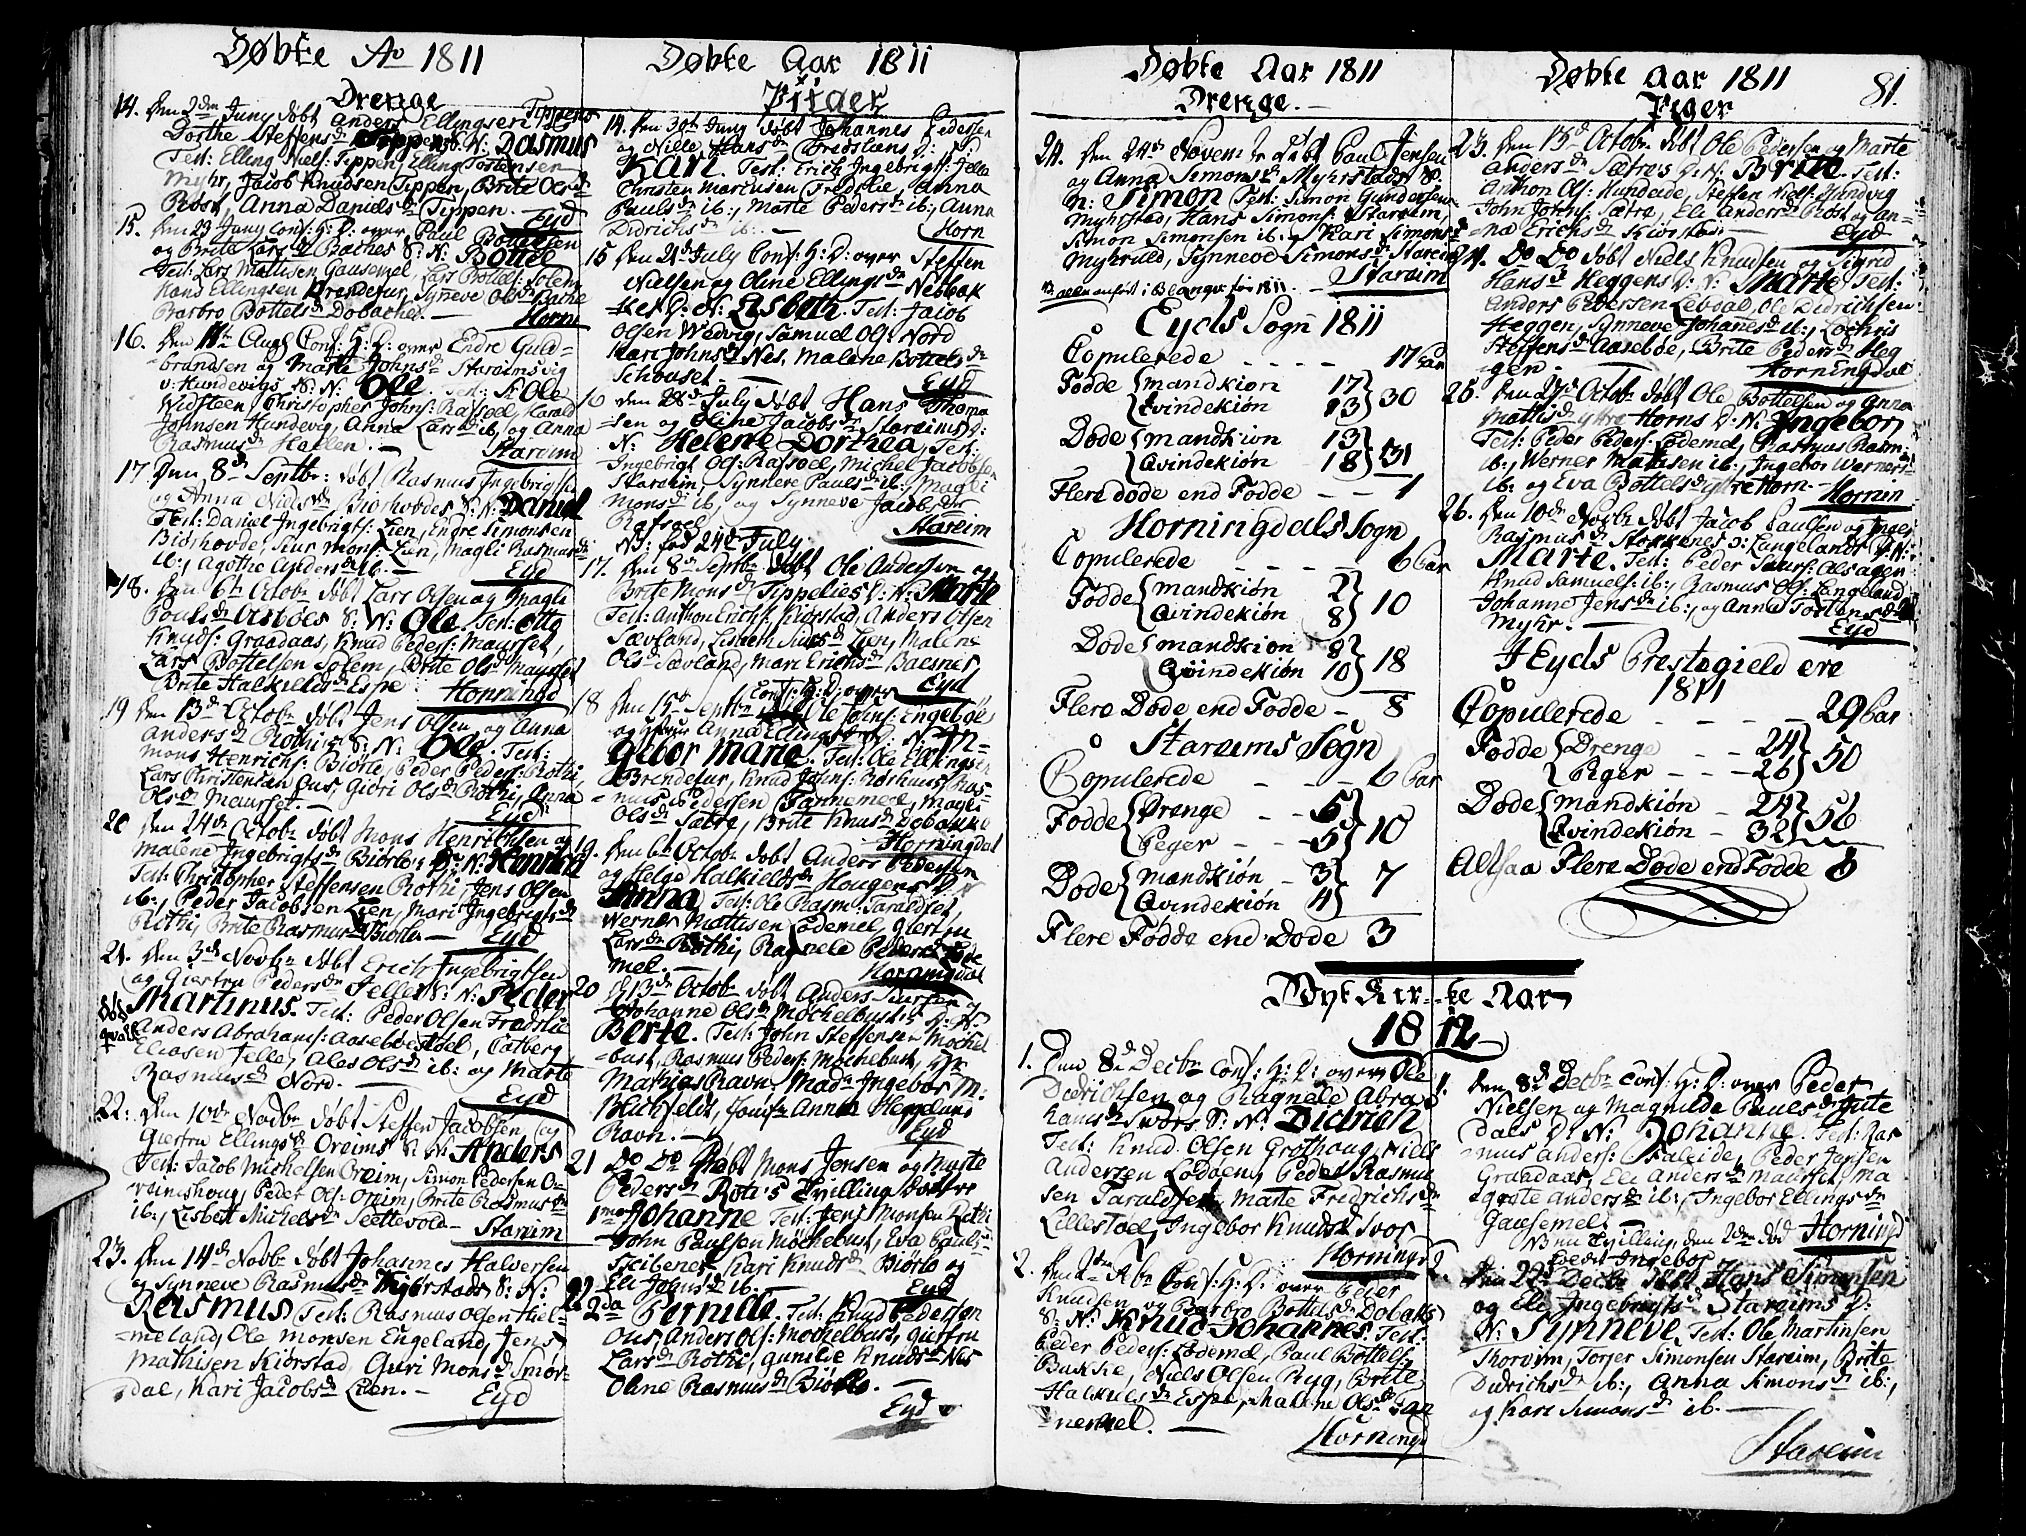 Døbte Ao 1811
Drenge
14. Den 2den Juny døbt Anders Ellingsen Tippens
Dorthe Steffensdr S: N: Rasmus
Test: Elling Niels: Tippen, Elling Tostensen
Myhr, Jacob Knudsen Tippen, Brite Olsdr
Røst, Anna Danielsdr Tippen. — Eyd
15. Den 23 Juny Conf: H: D: over Paul Bottelsen
og Brite Larsdr Baches S: N: Bottel
Test: Lars Mattisen Gausemel, Lars Bottels: Solem
Rand Ellingsen Brendefur, Synneve Olsdr Bache
Barbro Bottelsdr Dobache. — Hornin
16. Den 11te Aug Conf: H: D: over Endre Guld=
brandsen og Marte Johnsdr Staraimsvig
v: Hundevigs S: N: Ole. Test: Ole
Widsteen, Christopher Johns: Rafsoel, Harald
Johnsen Hundevig, Anna Larsdr ib, og Anna
Rasmusdr Hallen. — Staraim
17. Den 8de Septbr: døbt Rasmus Ingebrigtsen
og Anna Nielsdr Biørhovdes S: N: Daniel
Test: Daniel Ingebrigts: Lien, Endre Simonsen
Biørhovde, Siur Mons: Lien, Magli Rasmusdr
ib:, Agothe Andersdr ib. — Eyd
18. Den 6te Octobr døbt Lars Olsen og Magli
Poulsdr Aasbøes S: N: Ole Test: Otto
Knuds: Graadaas, Knud Peders: Maurset,
Lars Bottelsen Solem, Brite Olsdr Maurset
Brite Halkieldsdr Espe Horningd
19 Den 13de Octobr døbt Jens Olsen og Anna
Andersdr Rothi S: N: Ole. Test:
Mons Henrichs: Biørlo, Peder Peders: Rothi,
Lars Christensen Ous, Giøri Olsdr Rothi, Anna
Olsdr Maurset. — Eyd
20 Den 24de Octobr døbt Mons Henrichsen og
Malene Ingebrigtsdr Biørlo's S: N: Henrich
Test: Christopher Steffensen Rothi, Jens Olsen
ib:, Peder Jacobsen Lien, Mari Ingebrigtsdr
Rothi, Brite Rasmusdr Biørlo — Eyd
21. Den 3de Novbr døbt Erich Ingebrigtsen
og Giertru Pedersdr Jelles S: N: Peder
Martinus. Test: Peder Olsen Fredslie
Anders Abrahams: Aasebøestøel, Catberg
Eliasen Jelle, Ales Olsdr ib: og Marte
Rasmusdr Nord. — Eyd
22: Den 10de Novbr døbt Steffen Jacobsen og
Giertru Ellingsdr Oreims S: N: Anders
Test: Jacob Michelsen Oreim, Simon Pedersen O=
reimshoug, Peder Ols: Oreim, Brite Rasmusdr
ib:, Lisbeth Michelsdr Sletevold — Staraim
23. Den 14de Novbr døbt Johannes Halversen
og Synneve Rasmusdr Kiørstads S: N:
Rasmus Test: Rasmus Olsen Hiel=
=meland, Ole Monsen Engeland, Jens
Mathisen Kiørstad, Guri Monsdr Smør=
dal, Kari Jacobsdr Lien. — Eyd
Døbte Aar 1811
Piiger
14. Den 30te Juny døbt Johannes Pedersen
og Nille Hansdr Fredsliens D: N:
Kari. Test: Erich Ingebrigts: Jelle
Christen Martinsen Fredslie, Anna
Paulsdr ib:, Marte Pedersdr ib:, Anna
Didrichsdr ib:. — Horn
15 Den 21de July Conf: H: D: over Steffen
Nielsen og Oline Ellingsdr Nesbak
=kes D: N: Lisbeth. Test: Jacob
Olsen Wedvig, Samuel Ols: Nord
Kari Johnsdr Nes, Malene Bottelsdr
Schouset — Eyd
16 Den 28de July døbt Hans Thoma
=sen og Oline Jacobsdr Staraims D:
N: Helene Dorthea, Test:
Ingebrigt Ols: Rafsoel, Michel Jacobsen
Staraim, Synneve Paulsdr ib:, Magli
Monsdr ib, og Synneve Jacobsdr
Rafsoel Staraim
NB: fød 24de July
17. Den 8de Septbr døbt Ole Andersen og
Brite Monsdr Tippelies D: N: Marte
Test: Anthon Erichs: Kiørstad, Anders Olsen
Sævland, Lisbeth Siursdr Lien, Malene
Olsdr Sævland, Mari Erichsdr Raesnes. Eyd
18 Den 15de Septbr Conf: H: D: over Ole Johns: Engebøe
og Anna Ellingsdr D: N: In=
gebor Marie. Test: Ole Ellingsen
Brendefur, Knud Johns: Rørhuus, Ras=
=mus Pedersen Tannemel, Magli
Olsdr Sætre, Brite Knudsdr Dobakke
Horningdal
19. Den 6te Octobr døbt Anders Pedersen
og Helge Halkieldsdr Hougens D: N:
Anna Test: Ole Rasm: Taraldset,
Werner Mattisen Lødemel, Giertru
Larsdr Rothi, Ragnele Pedersdr Løde
mel. — Horningdal
20 d 13de Octobr døbt Anders Siursen og
Johanne Olsdr Møchelbusts D: N:
Berte. Test: John Steffensen Møchel
=bust, Rasmus Peders: Møchelbust, Hr
Mathias Ravn, Mad: Ingebor M:
Blichfeldt, Jomf: Anna Heggelund
Ravn. — Eyd
21 Do Do døbt Mons Jensen og Marte
Pedersdr Roti's Tvilling Døttre
1ma Johanne Test: Jens Monsen Rothi
John Paulsen Møchelbust, Eva Pauls=
Heibenes, Kari Knudsdr Biørlo og
Eli Johnsdr ib. Eyd
22 2da Pernille. Test: Knud Pedersen
Ous, Anders Ols: Møchelbust, Giertru
Larsdr Rothi, Gunilde Knudsdr Nes
Oline Rasmusdr Biørlo. — Eyd
Døbte Aar 1811
Drenge. —
24. Den 24de Novembr døbt Paul Jensen
og Anna Simonsdr Myhrstads S:
N: Simon Test: Simon Gundersen
Myhrstad, Hans Simons: Staraim,
Simon Simonsen ib. Kari Simonsdr
Myhrvold, Synneve Simonsdr Staraim
Staraim
Eyds Sogn 1811
Copulerede - - - - - 17 Par
Fødde { Mandkiøn 17 } 30
{ Qvindekiøn 13
Døde { Mandkiøn 13 } 31
{ Qvindekiøn 18
Flere døde end Fødde - - 1
Horningdals Sogn
Copulerede - - - - - 6 Par
Fødde { Mandkiøn 2 } 10
{ Qvindekiøn 8
Døde { Mandkiøn 8 } 18
{ Qvindekiøn 10
Flere Døde end Fødde - 8
Staraims Sogn
Copulerede - - - 6 Par
Fødde { Drenge - - 5 } 10
{ Peger - - 5
Døde { Mandkiøn - 3 } 7
{ Qvindekiøn 4
Flere Fødde end Døde 3
Døbte Aar 1811 81.
Piger
23. Den 13de Octobr døbt Ole Pedersen og Marte
Andersdr Sætres D: N: Brite. Test:
Anthon Ols: Hundeide, Steffen Niels: Hundvig
John Johns: Sætre, Eli Andersdr Røst og An=
=na Erichsdr Kiørstad. — Eyd
24. Do Do døbt Niels Knudsen og Sigrid
Hansdr Heggens D: N: Marte Test:
Anders Pedersen Levdal, Ole Didrichsen
Heggen, Synneve Johanesdr ib:, Lochris
Steffensdr Aasebøe, Brite Pedersdr Heg
gen. — Horningdal
25. Den 27de Octobr døbt Ole Bottelsen og Anna
Mathisdr yttre Horns D: N: Ingebor
Test: Peder Peders: Lødemel, Rasmus Rasm:
ib:, Werner Mathisen ib:, Ingebor Wernersdr
ib: og Eva Bottelsdr yttre Horn. — Hornin
26. Den 10de Novbr døbt Jacob Paulsen og Inger
Rasmusdr Stokkenes v: Langelands D: N:
Marte. Test: Peder Siurs: Alsagen
Knud Samuels: ib:, Rasmus Ols: Langeland
Johanne Jensdr ib:, og Anna Tostensdr
Myhr. — Eyd
I Eyds Prestegield ere
1811
Copulerede - - - - 29 Par
Fødde { Drenge - - 24 } 50
{ Peger - - - 26
Døde { Mandkiøn - 24 } 56
{ Qvindekiøn - 32
Altsaa Flere Døde end Fødde 6
Nyt Kirke Aar
1812
1. Den 8de Decbr Conf: H: D: over Ole
Didrichsen og Ragnele Abra
hamsdr Svors S: N: Didrich
Test: Knud Olsen Grothoug, Niels
Andersen Lødøen, Peder Rasmu
sen Taraldset, Marte Fredrichsdr
Lillestøel, Ingebor Knudsdr Svor
Horningd
2. Conf: H: D: over Peder
Knudsen og Barbro Bottelsdr Dobaks
S: N: Knud Johannes. Test:
Peder Peders: Lødemel, Paul Bottels:
Bakke, Niels Olsen Ryg, Brite
Halkieldsdr Espe, Malene Olsdr Tan
=nemel. — Horningd
1. Den 8de Decbr Conf: H: D: over Peder
Nielsen og Magnilde Paulsdr Gute
dals D: N: Johanne. Test: Ras
mus Anders: Faleide, Peder Jansen
Graadaas, Eli Andersdr Maurset, Ma
Andersdr ib:, Ingebor Ellingsdr
Gausemel. — Horningd
2. Den 22de Decbr døbt Hans Simonsen
og Eli Ingebrigtsdr Staraims D:
N: Synneve. Test: Ole Martinsen
Thorvim, Torger Simonsen Staraim, Brite
Didrichsdr ib:, Anna Simonsdr ib:,
og Kari Simonsdr ib. —
Staraim